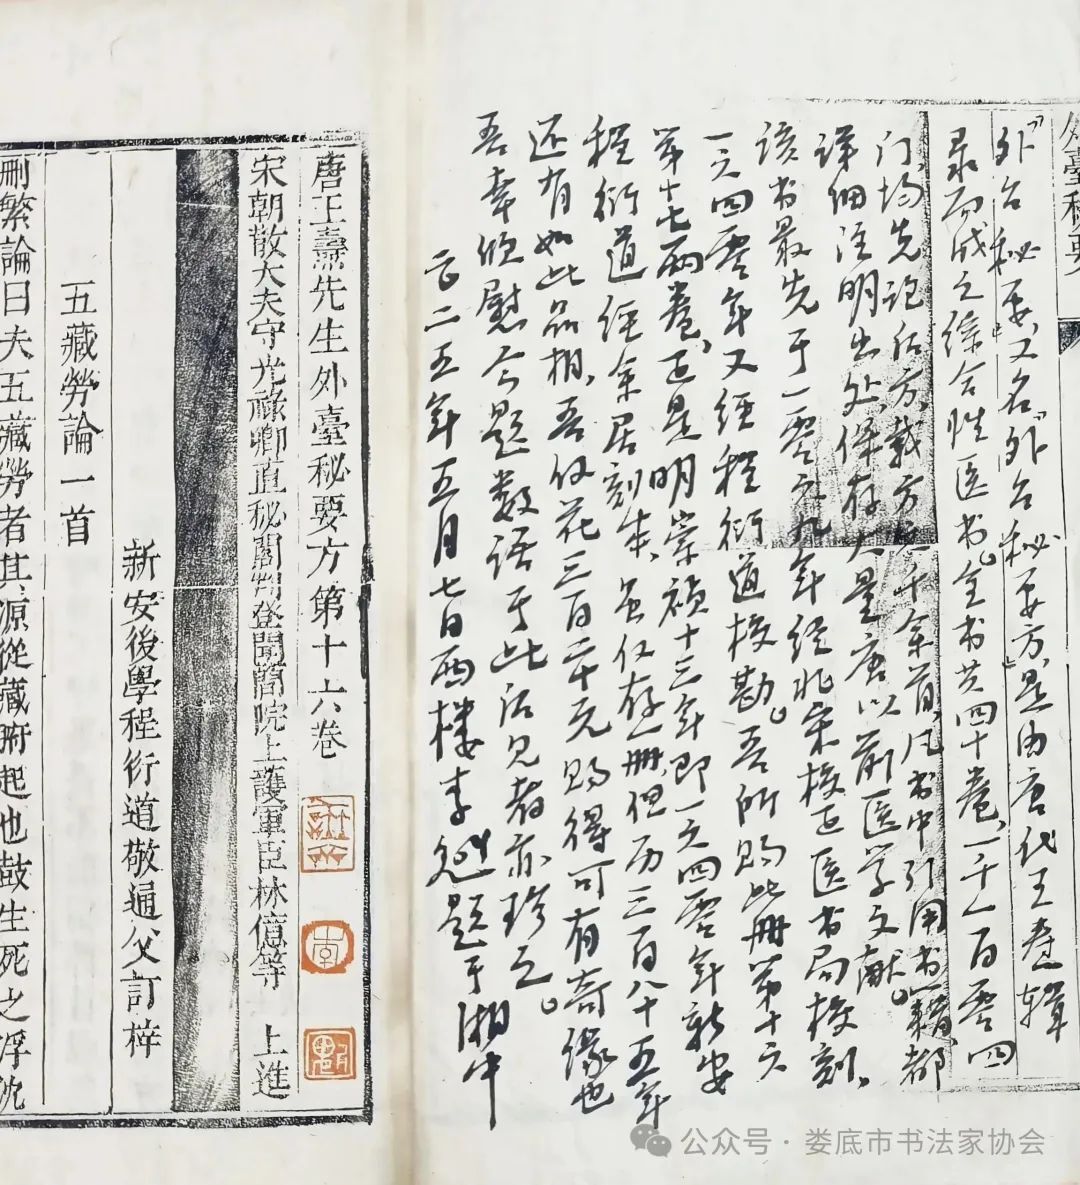 外臺秘要
“外台秘要”，又名“外台秘要方”，是由唐代王焘辑
录而成之综合性医书。全书共四十卷，一千一百零四
门，均先论后方，载方六千余首，凡书中引用书籍，都
详细注明出处，保存大量唐以前医学文献。
该书最先于一零六九年经北宋校正医书局校刻，
一六四零年又经程衍道校勘。吾所购此册第十六
第十七两卷，正是明崇祯十三年即一六四零年新安
程衍道经余居刻本，虽仅存一册，但历三百八十五年
还有如此品相，吾仅花三百二十元购得可有奇缘也
吾幸欣慰今题数语于此后见者亦珍之。
二五年五月七日两楼李 题于湘中
唐王燾先生外臺秘要方第十六卷
宋朝散大夫守光祿卿直秘閣判登聞簡院上護軍臣林億等 上進
新安後學程衍道敬通父訂梓
五藏勞論一首
刪繁論曰夫五藏勞者其源從藏腑起也鼓生死之浮沈
公众号·娄底市书法家协会